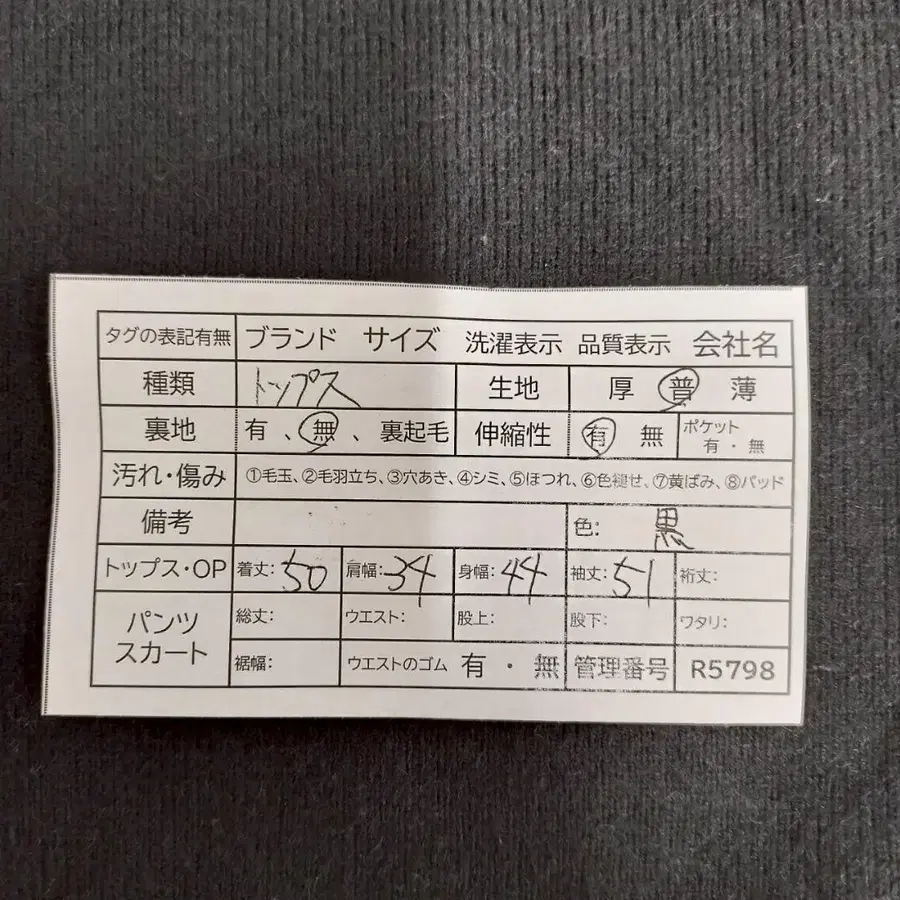 タグの表記有無 ブランド サイズ 洗濯表示 品質表示 会社名
種類 トップス 生地 厚 普 薄
裏地 有、無、裏起毛 伸縮性 有 無 ポケット 有・無
汚れ・傷み ①毛玉、②毛羽立ち、③穴あき、④シミ、⑤ほつれ、⑥色褪せ、⑦黄ばみ、⑧パッド
備考 色: 黒
トップス・OP 着丈: 50 肩幅: 34 身幅: 44 袖丈: 51 裄丈:
パンツ スカート 総丈: ウエスト: 股上: 股下: ワタリ:
裾幅: ウエストのゴム 有・無 管理番号 R5798